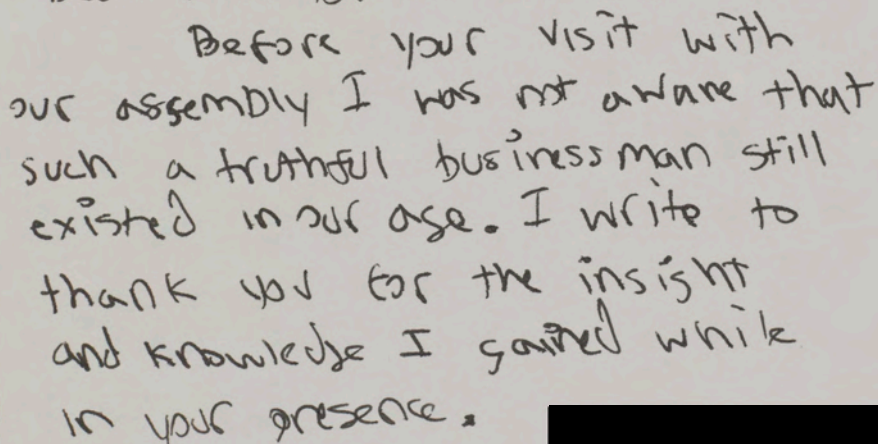 Before your visit with
our assembly I was not aware that
such a truthful businessman still
existed in our age. I write to
thank you for the insight
and knowledge I gained while
in your presence.